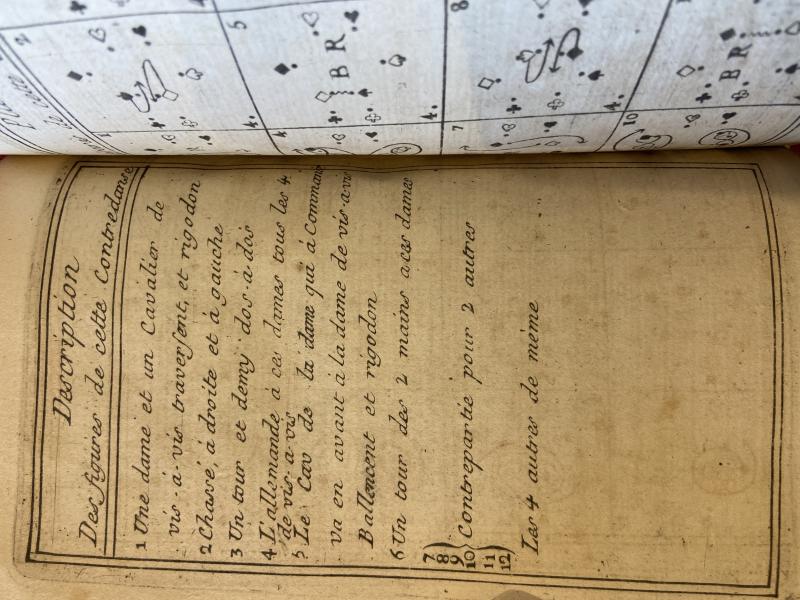 Description
Des figures de cette Contredanse
1 Une dame et un Cavalier de
vis-à-vis traversent, et rigodon
2 Chassé, à droite et à gauche
3 Un tour et demy dos-à-dos
4 L'allemande à ces dames tous les 4
de vis-a-vis
5 Le Cav de la dame qui à Commancé
va en avant à la dame de vis-a-vis
Ballencent et rigodon
6 Un tour des 2 mains a ces dames
7
8
9
10 Contrepartie pour 2 autres
11
12
Les 4 autres de même
2
5
8
B R
B R
1
4
7
10